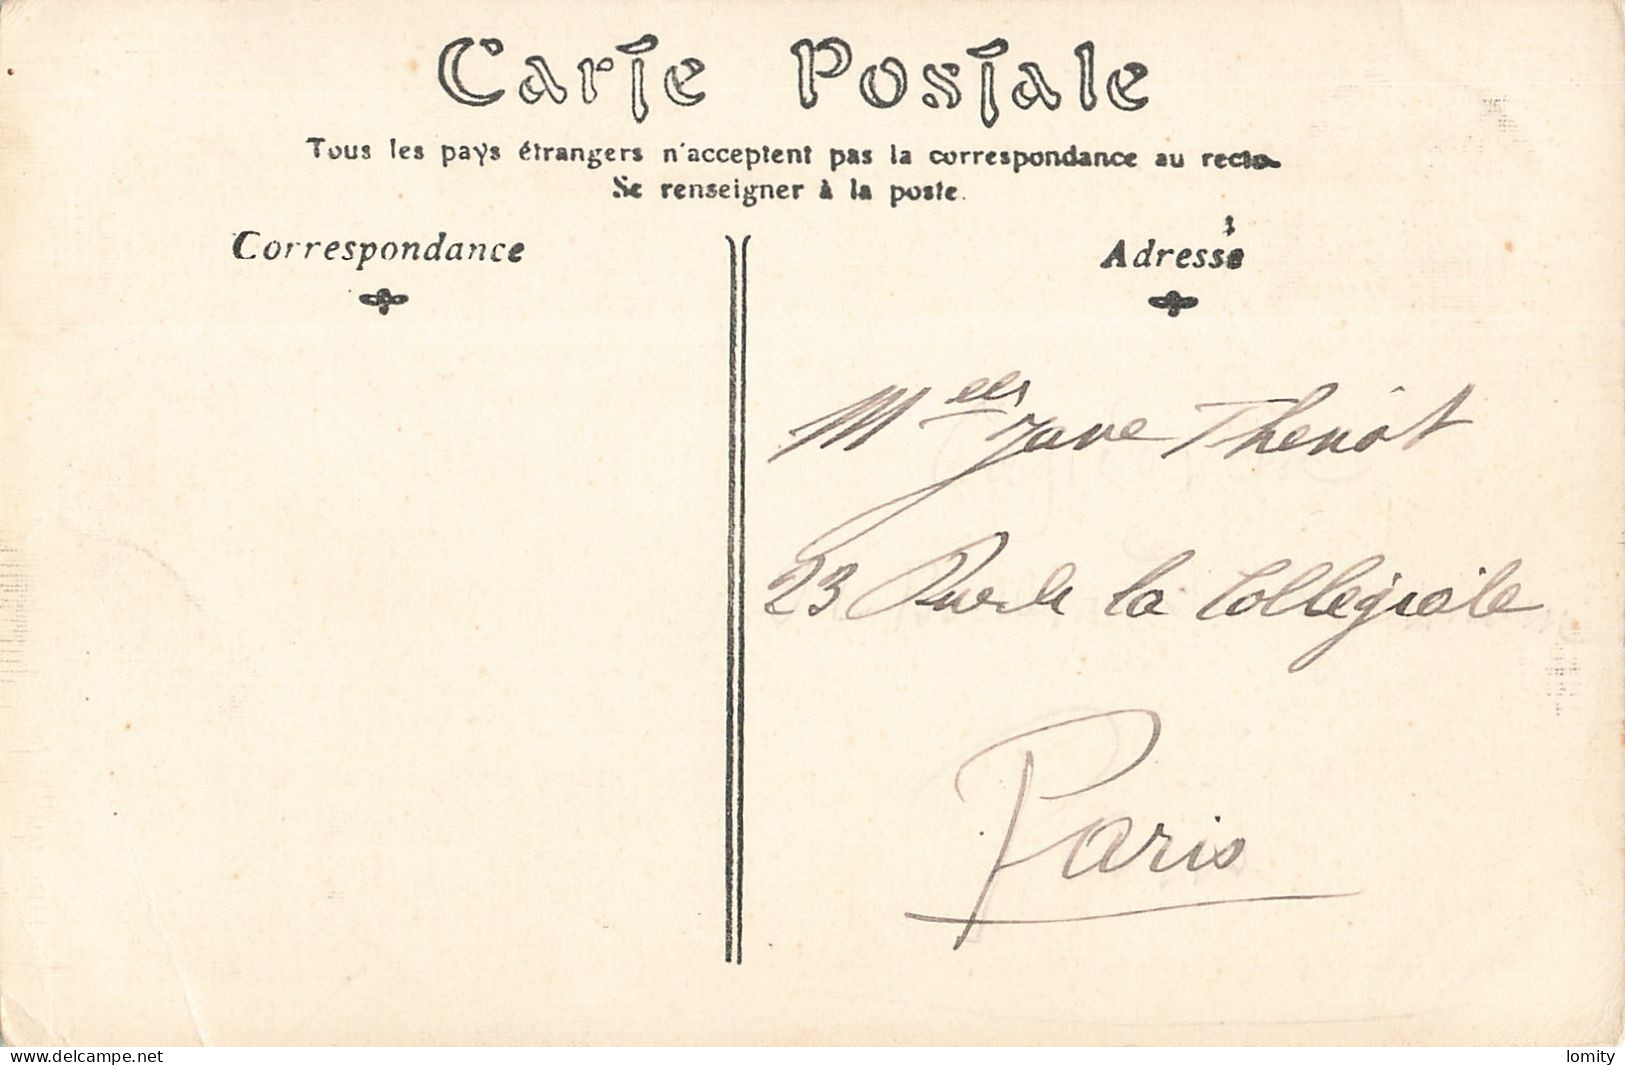 Carte Postale
Tous les pays étrangers n'acceptent pas la correspondance au recto
Se renseigner à la poste.
Correspondance
Adresse
Melles Jane Thenot
23 Rue de la Collegiale
Paris
www.delcampe.net
lomity